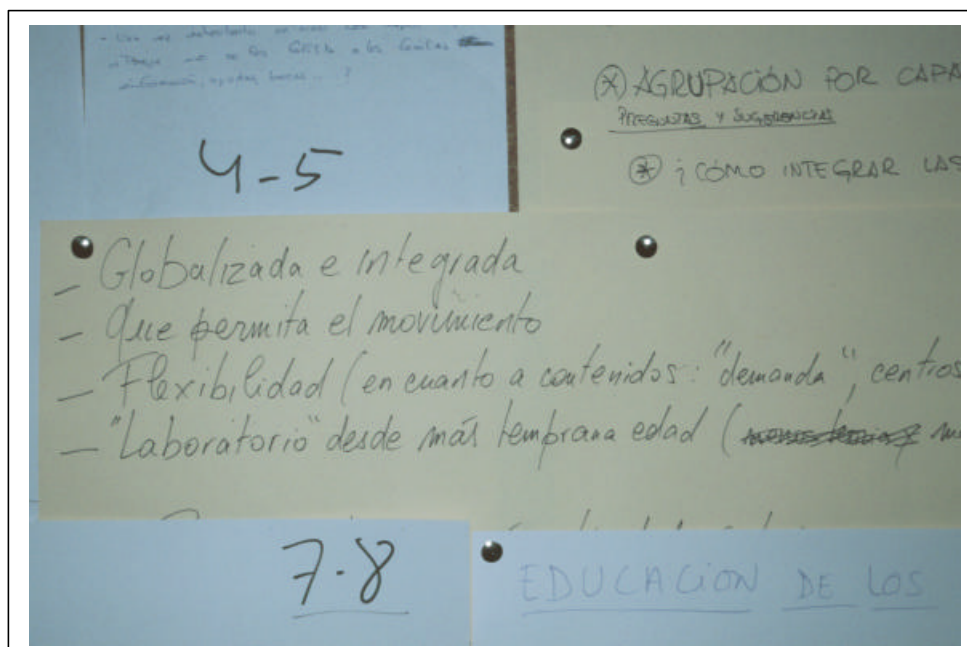 información, ayudas, becas... ?
4-5
(*) AGRUPACIÓN POR CAPA
PREGUNTAS Y SUGERENCIAS
(*) ¿CÓMO INTEGRAR LAS
- Globalizada e integrada
- Que permita el movimiento
- Flexibilidad (en cuanto a contenidos: "demanda", centros
- "Laboratorio" desde más temprana edad (
7-8
EDUCACIÓN DE LOS